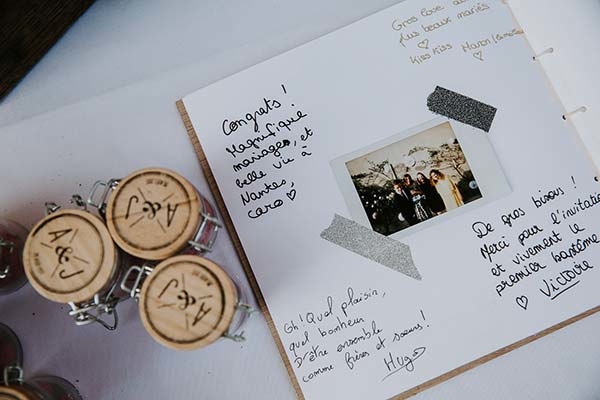 Gros love aux
plus beaux mariés
♡
Kiss Kiss Manon
Congrats!
Magnifique
mariage, et
belle vie à
Nantes,
Caro ♡
De gros bisous!
Merci pour l'invitation
et vivement le
premier baptême
♡ Victoire
Oh! Quel plaisir,
quel bonheur
D'être ensemble
comme frères et sœurs!
Hugo
A&J
A&J
A&J